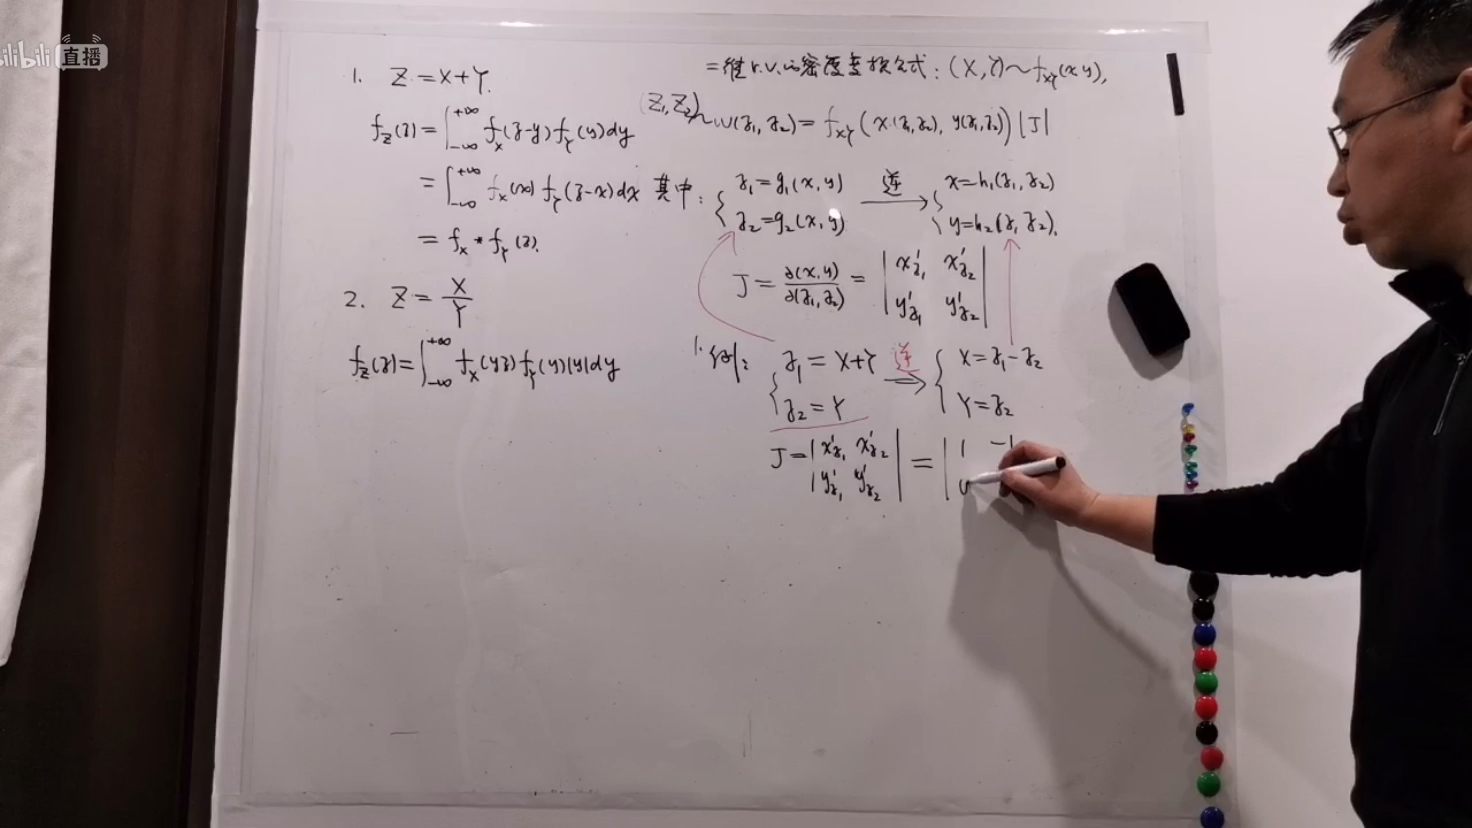 bilibili 直播
1. Z = X+Y.
f_Z(z) = ∫_{-∞}^{+∞} f_X(z-y) f_Y(y) dy
= ∫_{-∞}^{+∞} f_X(x) f_Y(z-x) dx
= f_X * f_Y (z).
2. Z = X/Y
f_Z(z) = ∫_{-∞}^{+∞} f_X(yz) f_Y(y) |y| dy
二维r.v.的密度变换公式: (X,Y) ~ f_{XY}(x,y),
(Z₁,Z₂) ~ w(z₁,z₂) = f_{XY}(x(z₁,z₂), y(z₁,z₂)) |J|
其中: { z₁ = g₁(x,y) 逆→ { x = h₁(z₁,z₂)
z₂ = g₂(x,y) y = h₂(z₁,z₂).
J = ∂(x,y)/∂(z₁,z₂) = | x'_{z₁} x'_{z₂} |
| y'_{z₁} y'_{z₂} |
1. 例: { z₁ = X+Y 逆⇒ { X = z₁-z₂
z₂ = Y Y = z₂
J = | x'_{z₁} x'_{z₂} | = | 1 -1
| y'_{z₁} y'_{z₂} | | 0